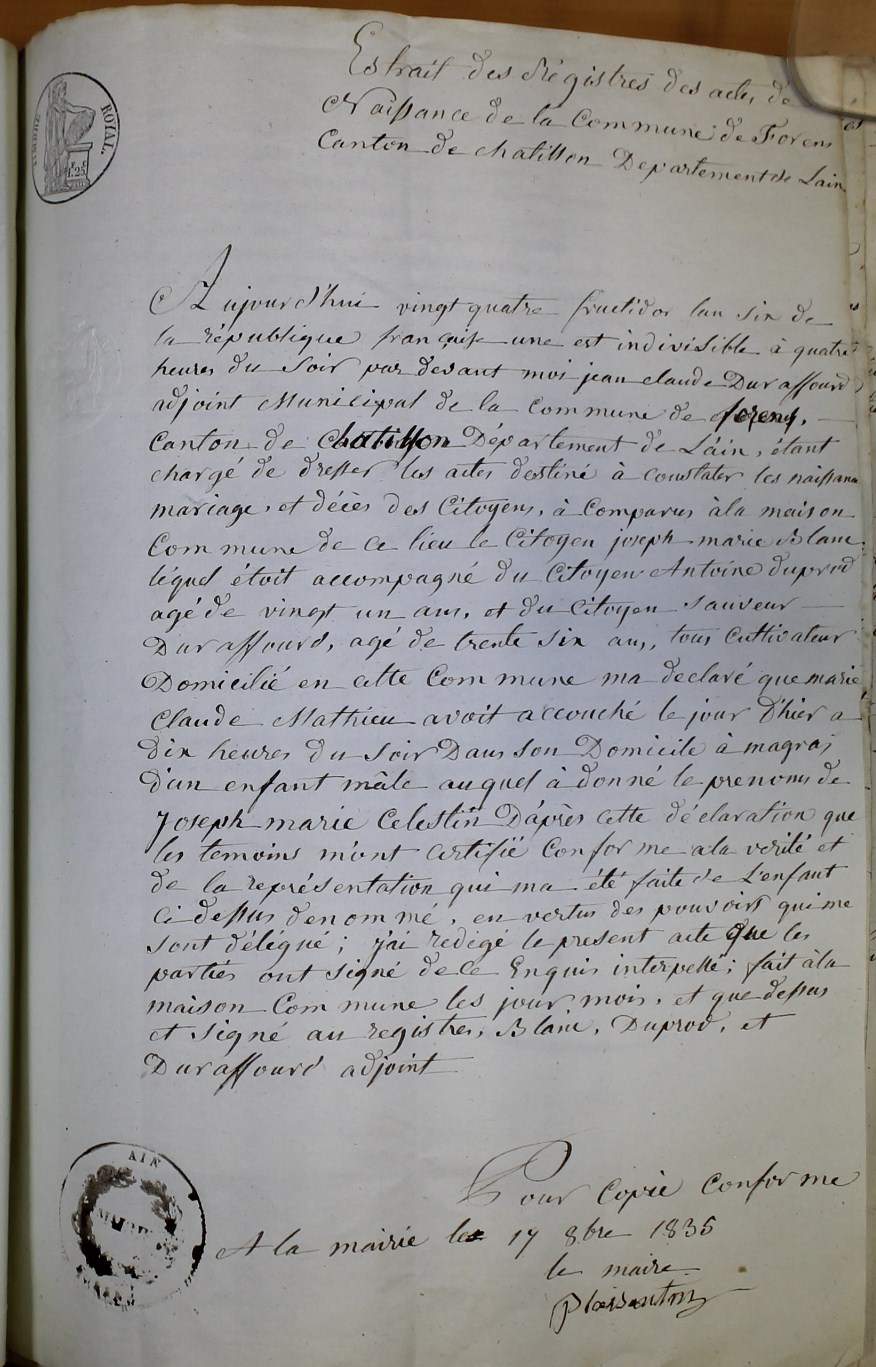 TIMBRE ROYAL.
1.25
Extrait des Régistres des actes de
Naissance de la Commune de Forens
Canton de chatillon Departement de Lain
Aujourd'hui vingt quatre fructidor lan six de
la république française une est indivisible à quatre
heures du Soir par devant moi jean claude Duraffourd
adjoint Municipal de la commune de forens,
Canton de Chatillon Département de L'ain, étant
chargé de dresser les actes destiné à constater les naissance
mariage, et décès des Citoyens, à Comparus à la maison
Commune de ce lieu le Citoyen joseph marie Blanc
léquel étoit accompagné du Citoyen Antoine duprod
agé de vingt un ans, et du citoyen Sauveur
Duraffourd, agé de trente six ans, tous Cultivateur
Domicilié en cette Commune ma declaré que marie
Claude Mathieu avoit accouché le jour D'hier a
Dix heures du Soir Dans Son Domicile à magras
D'un enfant mâle auquel à donné le prenoms de
Joseph marie Celestin D'après cette déclaration que
les temoins m'ont Certifié conforme a la verité et
de la représentation qui ma été faite de L'enfant
Ci dessus denommé, en vertus des pouvoirs qui me
Sont délégué; j'ai redegé le present acte que les
parties ont signé de ce Enquis interpellé; fait à la
maison Commune les jour mois, et que dessus
et signé au registres, Blanc, Duprod, et
Duraffourd adjoint
Pour Copie conforme
A la mairie le 19 8bre 1835
le maire
AIN
MAIRIE